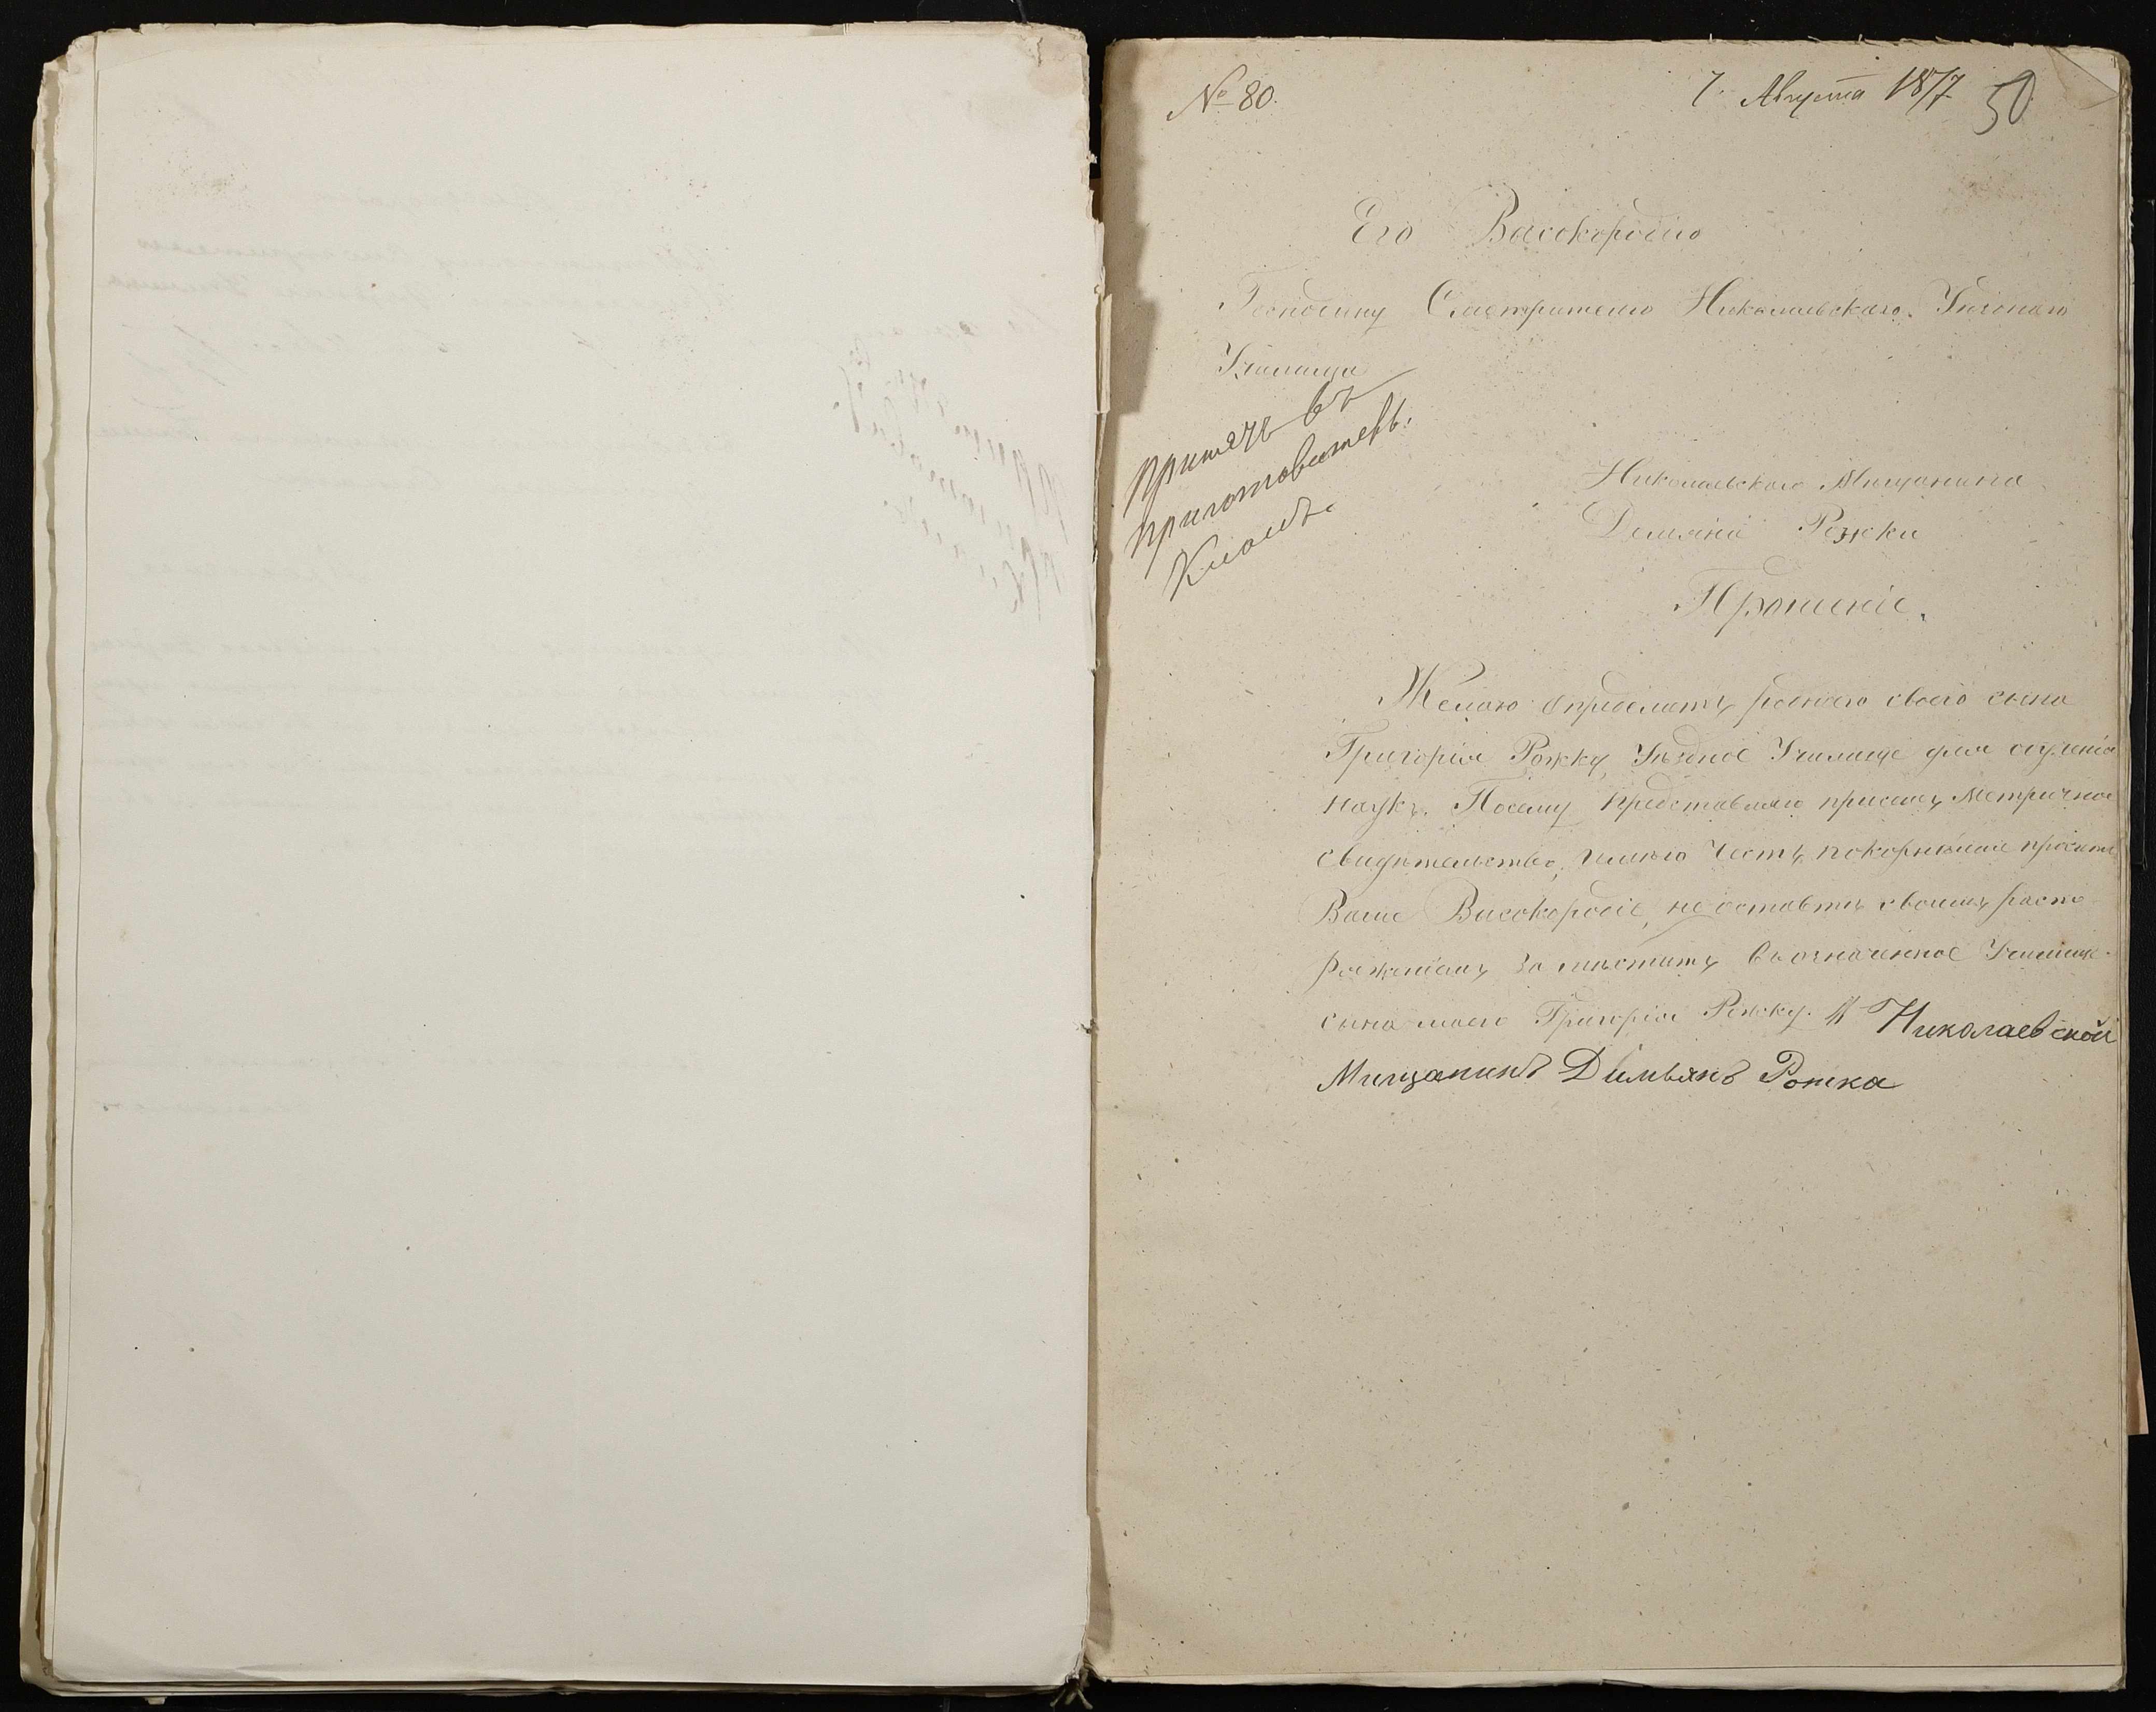 № 80.
7. Августа 1877
50
Его Высокородію
Господину Смотрителю Николаевскаго Уѣзднаго
Училища
Принять въ
приготовитель.
классъ.
Николаевскаго Мищанина
Демяна Рожки
Прошеніе.
Желаю опредѣлить роднаго своего сына
Григорія Рожку, Уѣздное Училище для
наукъ. Посему представляю присемъ Метричное
свидѣтельство, имѣю честь покорнѣйше просить
Ваше Высокородіе, не оставть своимъ распо-
ряженіемъ за мѣстить въ означенное Училище
сына моего Григорія Рожку. Николаевской
Мищанинъ Димьянъ Рошка